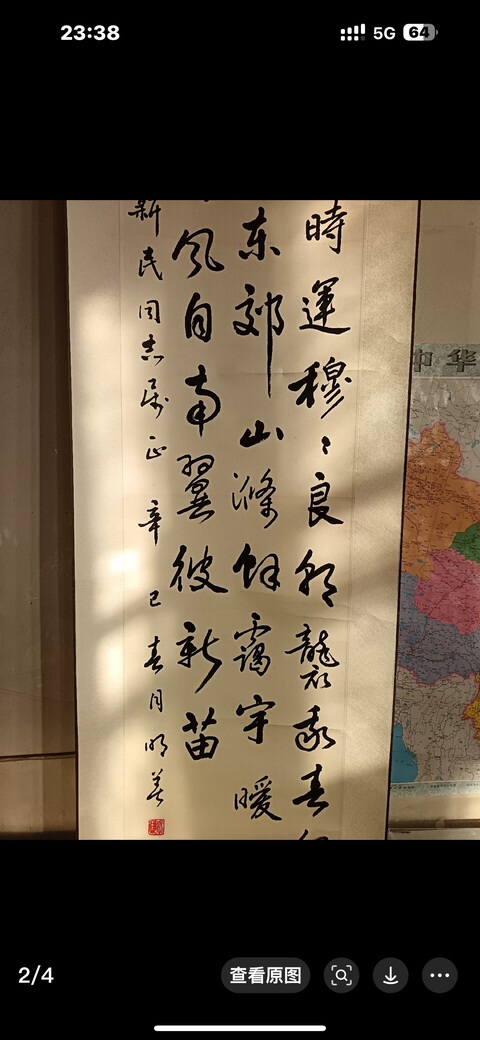 23:38
5G 64
時運穆〻良朝襲我春
东郊山滌餘靄宇暧
风自南翼彼新苗
新民同志属正 辛巳春月明
中华
2/4
查看原图